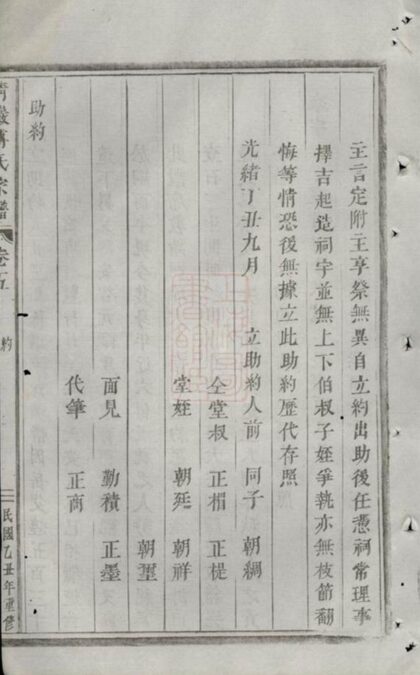 主言定附主享祭無異自立約出助後任憑祠常理事
擇吉起造祠宇並無上下伯叔子姪爭執亦無枝節翻
悔等情恐後無據立此助約歷代存照
光緒丁丑九月 立助約人前 同子 朝綱
仝堂叔 正楣 正楗
堂姪 朝班 朝祥
朝璽
面見 勤積 正墨
代筆 正商
助約
氏宗譜 卷五 約 民國乙丑年重修